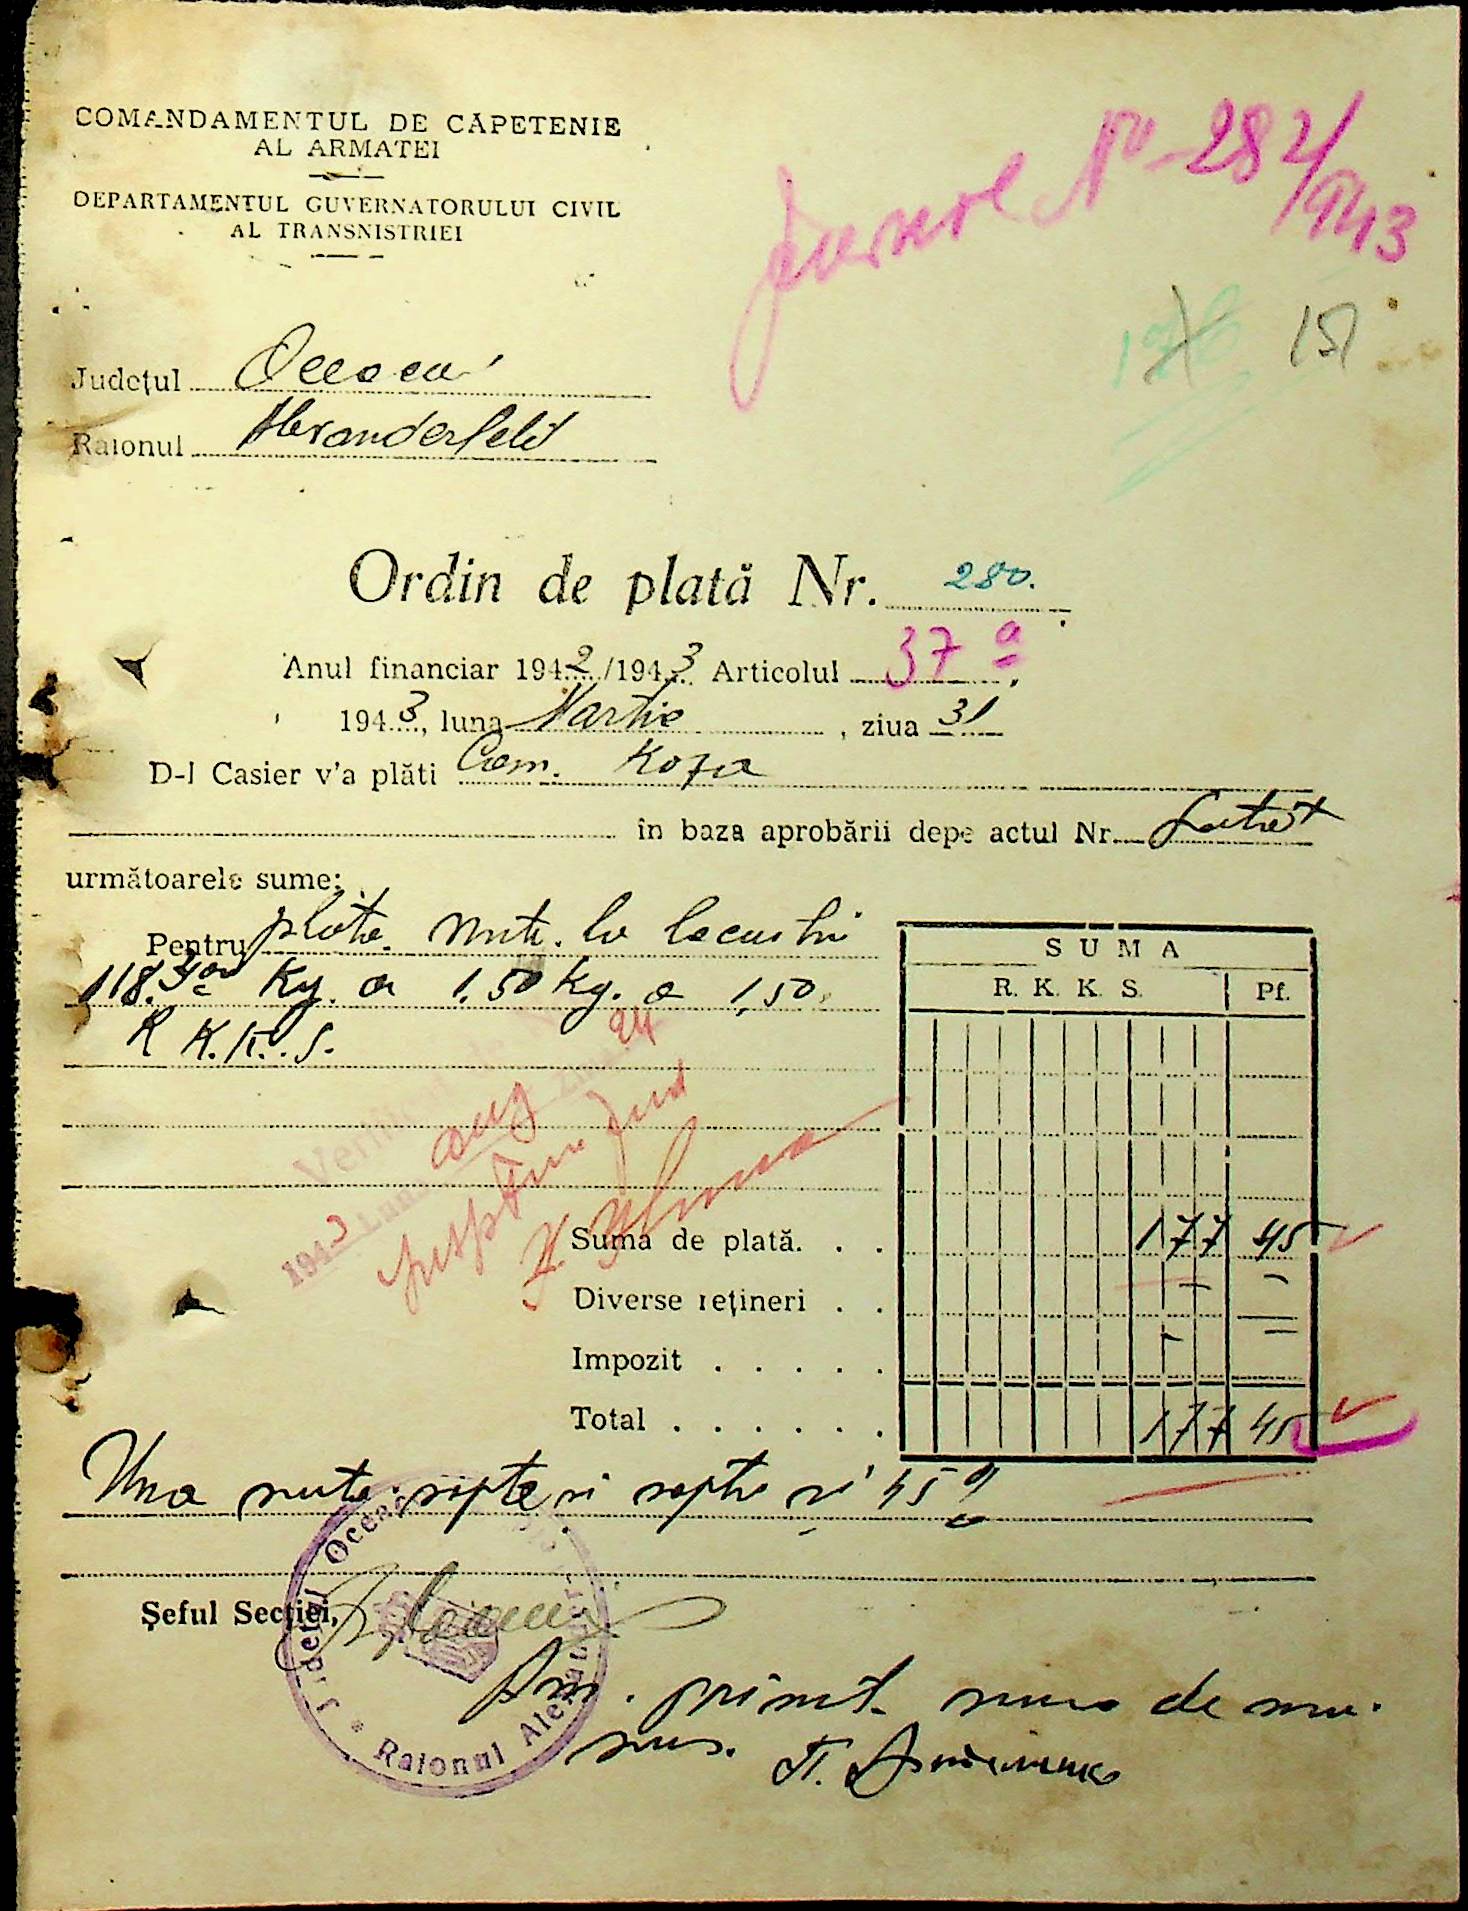 COMANDAMENTUL DE CAPETENIE
AL ARMATEI
DEPARTAMENTUL GUVERNATORULUI CIVIL
AL TRANSNISTRIEI
No 282/943
151
Județul Oceacov
Raionul Alexanderfeld
Ordin de plată Nr. 280.
Anul financiar 1942/1943 Articolul 37 a
1943, luna Martie, ziua 31
D-l Casier v'a plăti Com.
în baza aprobării depe actul Nr.
următoarele sume:
Pentru plata
118.300 Kg. a 1.50 Kg. a 1,50
R K.K.S.
SUMA
R. K. K. S. Pf.
Verificat
24
1943 Luna aug
Suma de plată. . . 177 45
Diverse rețineri . . — —
Impozit . . . . . - —
Total . . . . . . 177 45
Una suta șapte și 45
Șeful Secției,
Județul Oceacov * Raionul Alexander
Am primit suma de mai
sus.